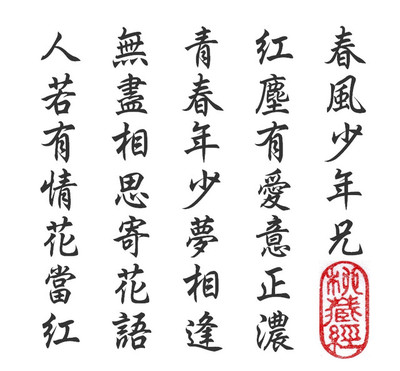 春風少年兄
秘藏經
紅塵有愛意正濃
青春年少夢相逢
無盡相思寄花語
人若有情花當紅